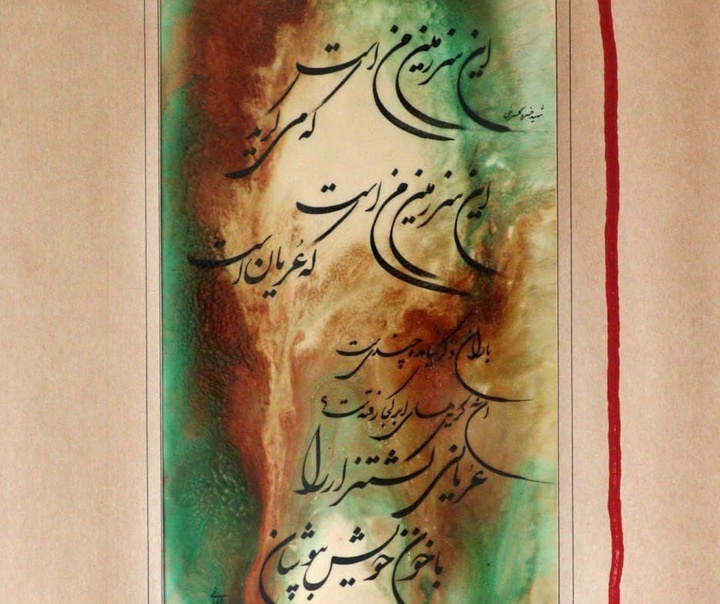 این سرزمین من است
شهید خسرو گلسرخی
که می‌گرید
این سرزمین من است
که عُریان است
باران دگر نیامده چندی‌ست
این گریه‌های ابر کجا رفته‌ست؟
عریانی کشتزار را
با خون خویش بپوشان